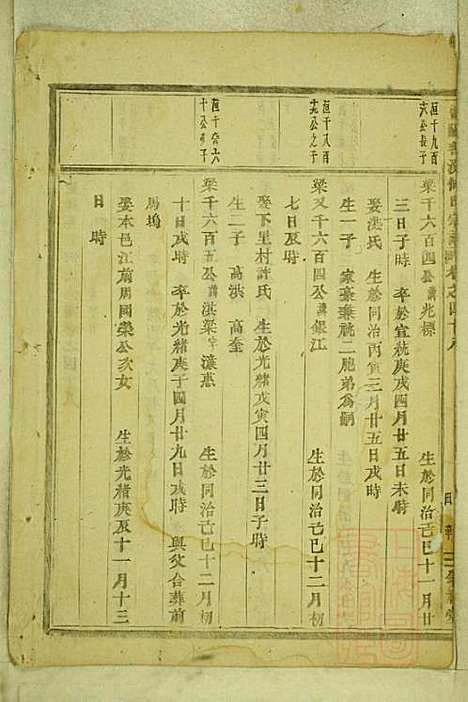 氏宗譜卷之四十八
亘千九百
公長子
梁千六百四公諱兆標 生於同治己巳十一月廿
三日子時 卒於宣統庚戌四月廿五日未時
娶洪氏 生於同治丙寅三月廿五日戌時
生一子 家棄 棄祧二胞弟爲嗣
亘千八百
公之子
梁又千六百四公諱銀江 生於同治己巳十二月初
七日及時
娶下里村許氏 生於光緒戊寅四月廿三日子時
生二子 高洪 高奎
亘千六
十公 子
梁千六百五公諱洪梁字濂惠 生於同治己巳十二月初
十日戌時 卒於光緒庚子四月廿九日戌時 與父合葬前
馬塢
娶本邑江前周國榮公次女 生於光緒庚及十一月十三
日 時